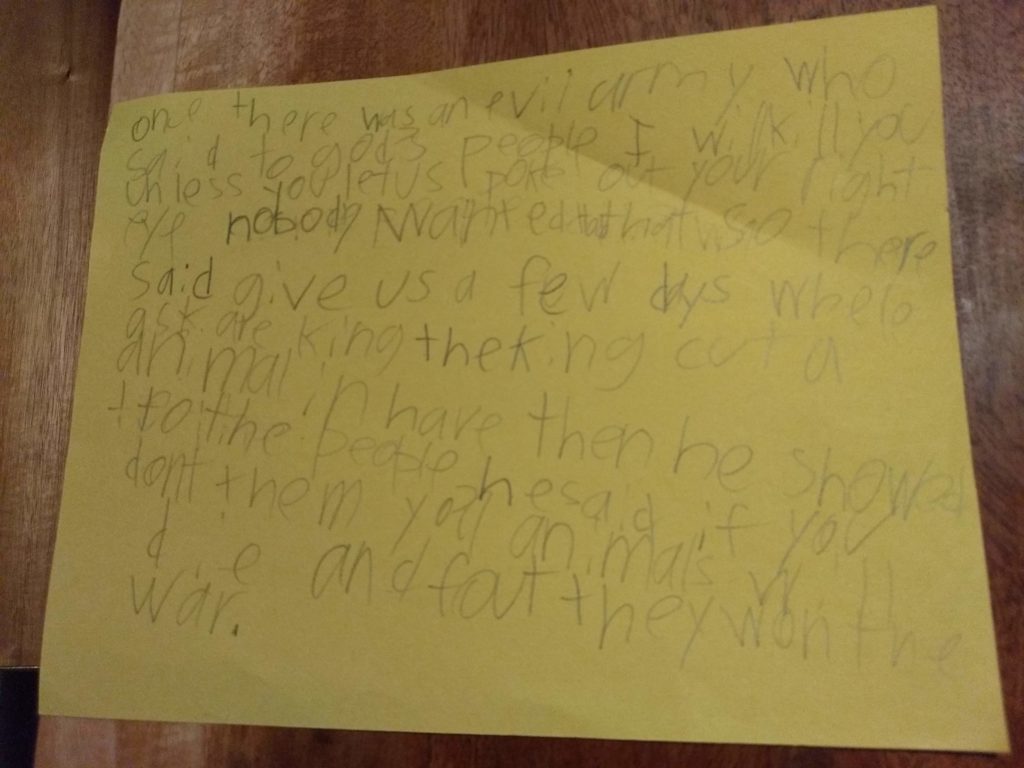 one there was an evil army who
said to god's people I will kill you
unless you let us poke out your right
eye nobody wanted that so there
said give us a few days
ask are king the king cut a
animal in have then he showed
to the people he said if you
dont them you animals will
die and fout they won the
war.